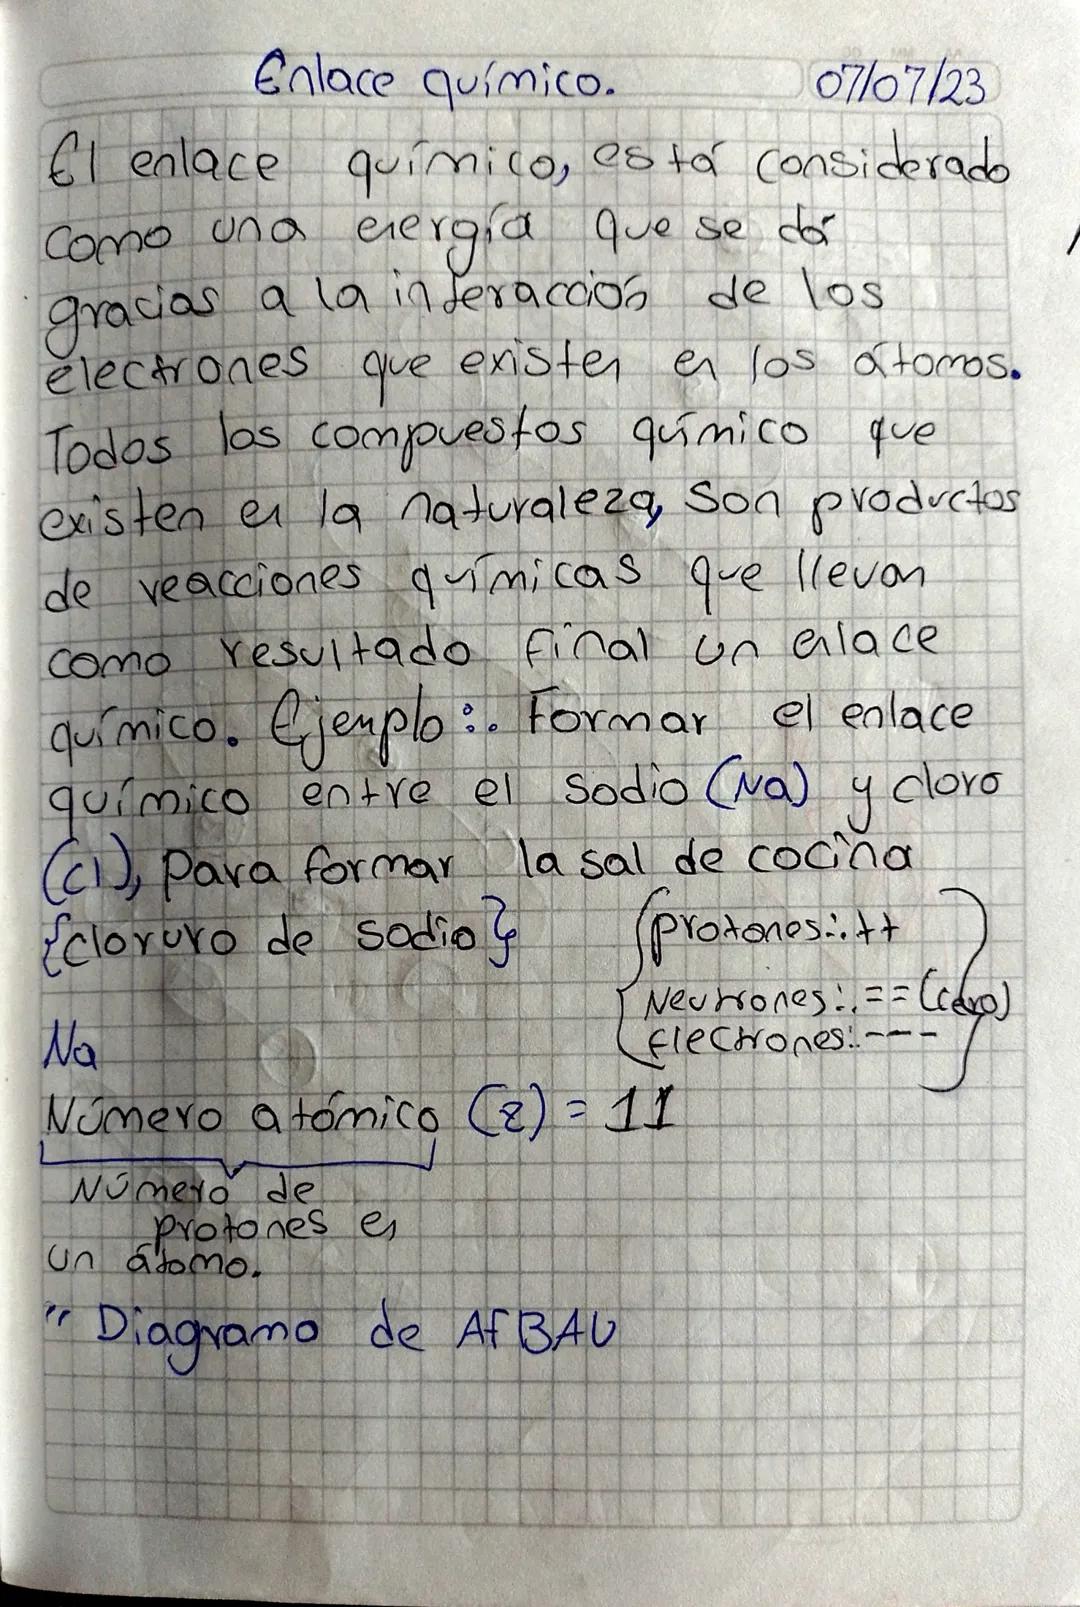 Enlace químico. 07/07/23
El enlace químico, está considerado
como una energía que se dá
gracias a la interacción de los
electrones que existen en los átomos.
Todos los compuestos químico que
existen en la naturaleza, son productos
de reacciones químicas que llevan
como resultado final un enlace
químico. Ejemplo:. Formar el enlace
químico entre el sodio (Na) y cloro
(Cl), para formar la sal de cocina
{cloruro de sodio}
protones:. ++
Neutrones:. == (cero)
Electrones:. ---
Na
Número atómico (z) = 11
Número de
protones en
un átomo.
" Diagrama de AFBAU